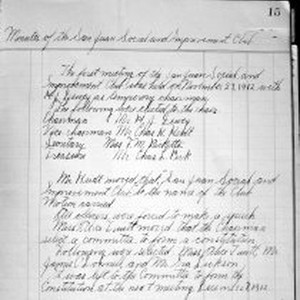 15
Minutes of the San Juan Social and Improvement Club
The first meeting of the San Juan Social and
Improvement Club was held on November 27, 1912, with
Mr. Dewey as temporary chairman
The following was elected to the chair
Chairman Mr. H. J. Dewey
Vice chairman Mr. Chas H.
Secretary Miss F. M.
Treasurer Mr. Chas L.
Mr. moved that San Juan Social and
Improvement Club be the name of the Club
Motion carried
All officers were forced to make a speech
Miss moved that the Chairman
select a committee to form a constitution
following were selected Miss Mr.
James and Mr. Jackson
It was left to the Committee to form the
Constitution at the next meeting December 7, 1912